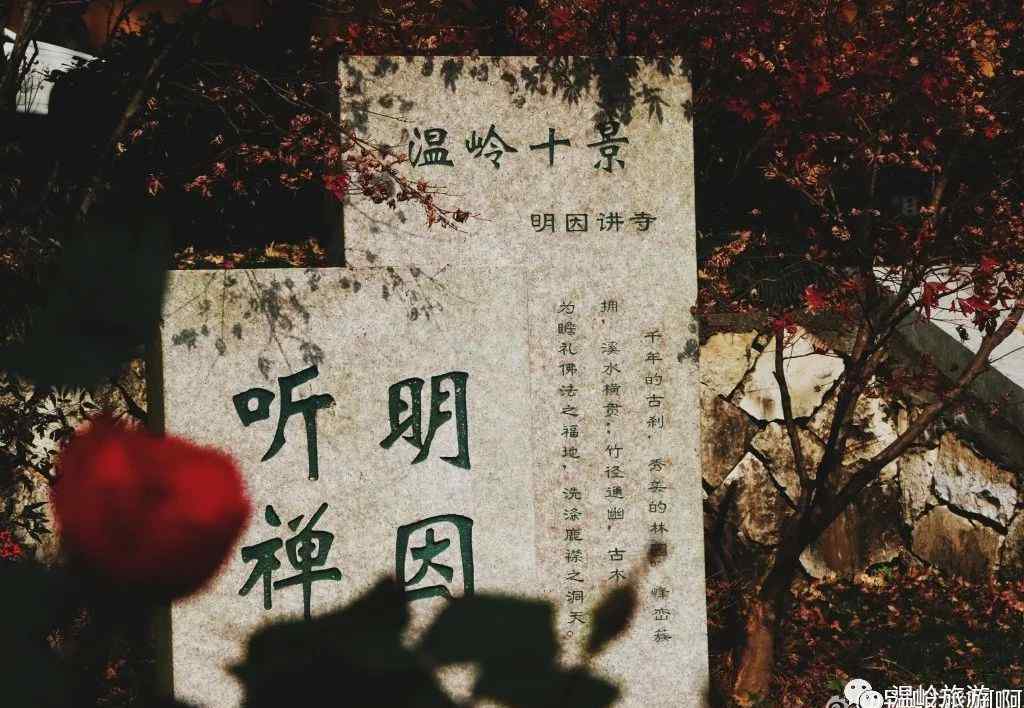 温岭十景
明因讲寺
明因
听禅
千年的古刹，秀美的林园，峰峦蔟
拥，溪水横贯；竹径通幽，古木
为瞻礼佛法之福地，洗涤襟之洞天。
温岭旅游